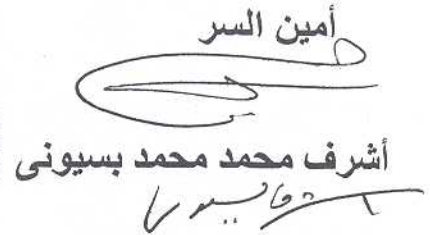 أمين السر
أشرف محمد محمد بسيونى